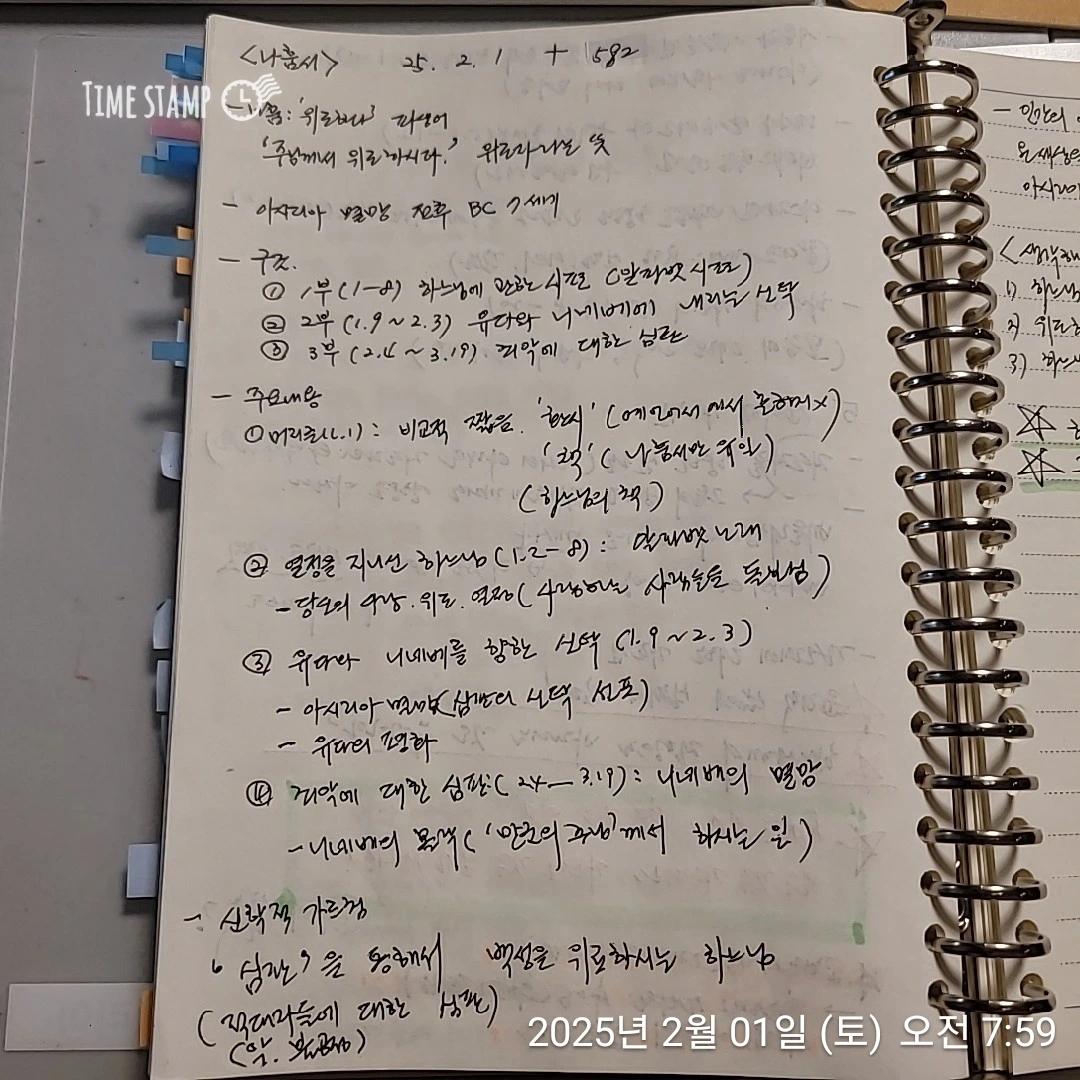 <나훔서> 25. 2. 1 + 1582
TIME STAMP
- 나훔: '위로하다' 파생어
'주님께서 위로하시다.' 위로자라는 뜻
- 아시리아 멸망 전후 BC 7세기
- 구조.
① 1부 (1-8) 하느님에 관한 시프 (알파벳 시프)
② 2부 (1.9 ~ 2.3) 유다와 니네베에 내리는 신탁
③ 3부 (2.4 ~ 3.19) 죄악에 대한 심판
- 주요내용
① 머리글(1.1) : 비교적 짧음. '환시' (예언서에서 흔하지x)
'책' ( 나훔서만 유일)
(하느님의 책)
② 열정을 지니신 하느님 (1.2-8) : 알파벳 노래
- 당신의 사랑. 위로. 열정( 사랑하는 사람들을 돌보심 )
③ 유다와 니네베를 향한 신탁 (1.9 ~ 2.3)
- 아시리아 멸망(심판의 신탁 선포)
- 유다의 평화
④ 죄악에 대한 심판: ( 2.4 — 3.19) : 니네베의 멸망
- 니네베의 몰락 ( '만군의 주님'께서 하시는 일 )
- 신학적 가르침
'심판'을 통해서 백성을 위로하시는 하느님
( 적대자들에 대한 심판)
(악.
- 인간의
온세상의
아시리아
<생각해
1) 하느님
2) 위로
3) 하느
2025년 2월 01일 (토) 오전 7:59